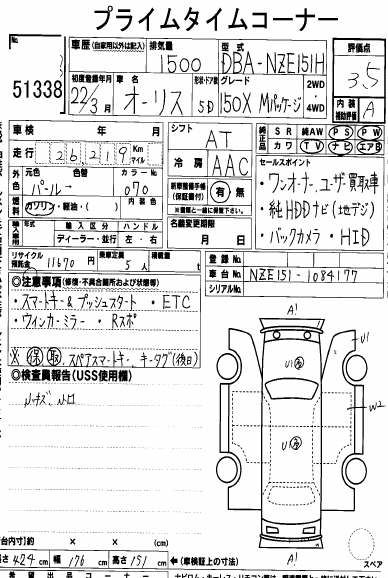 プライムタイムコーナー
No
51338
車歴 (自家用以外は記入)
排気量
1500
型式
DBA-NZE151H
評価点
3.5
初度登録年月
22/3月
車名
オーリス
形状・ドア数
5D
グレード
150X Mパッケージ
2WD
・
4WD
内装
補助評価
A
車検 年 月
走行 26219 Km マイル
シフト
AT
冷房
AAC
純正品
SR 純AW PS PW
カワ TV ナビ エアB
外色
元色 色替 カラーNo
パール→ 070
燃料
ガソリン・軽油・( ) 内装色
新車整備手帳
(保証書付)
有・無
※記録簿と一緒に添付
輸入車用
輸入区分 ハンドル
ディーラー・並行 左・右
名義変更期限
月 日
セールスポイント
・ワンオーナー、ユーザー買取車
・純HDDナビ(地デジ)
・バックカメラ・HID
リサイクル預託金 11670円
乗車定員 5人
積載量 t
登録No
車台No NZE151-1084177
シリアルNo
◎注意事項(修復・不具合箇所および状態等)
・スマートキー&プッシュスタート ・ETC
・ウィンカーミラー ・Rスポ
※ 保 取 スペアスマートキー キータグ(後日)
◎検査員報告(USS使用欄)
A1
U1
U1
U1
W2
A1
スペア
荷台内寸(約) × × cm
長さ 424 cm 幅 176 cm 高さ 151 cm ←(車検証上の寸法)
希望出品コーナー